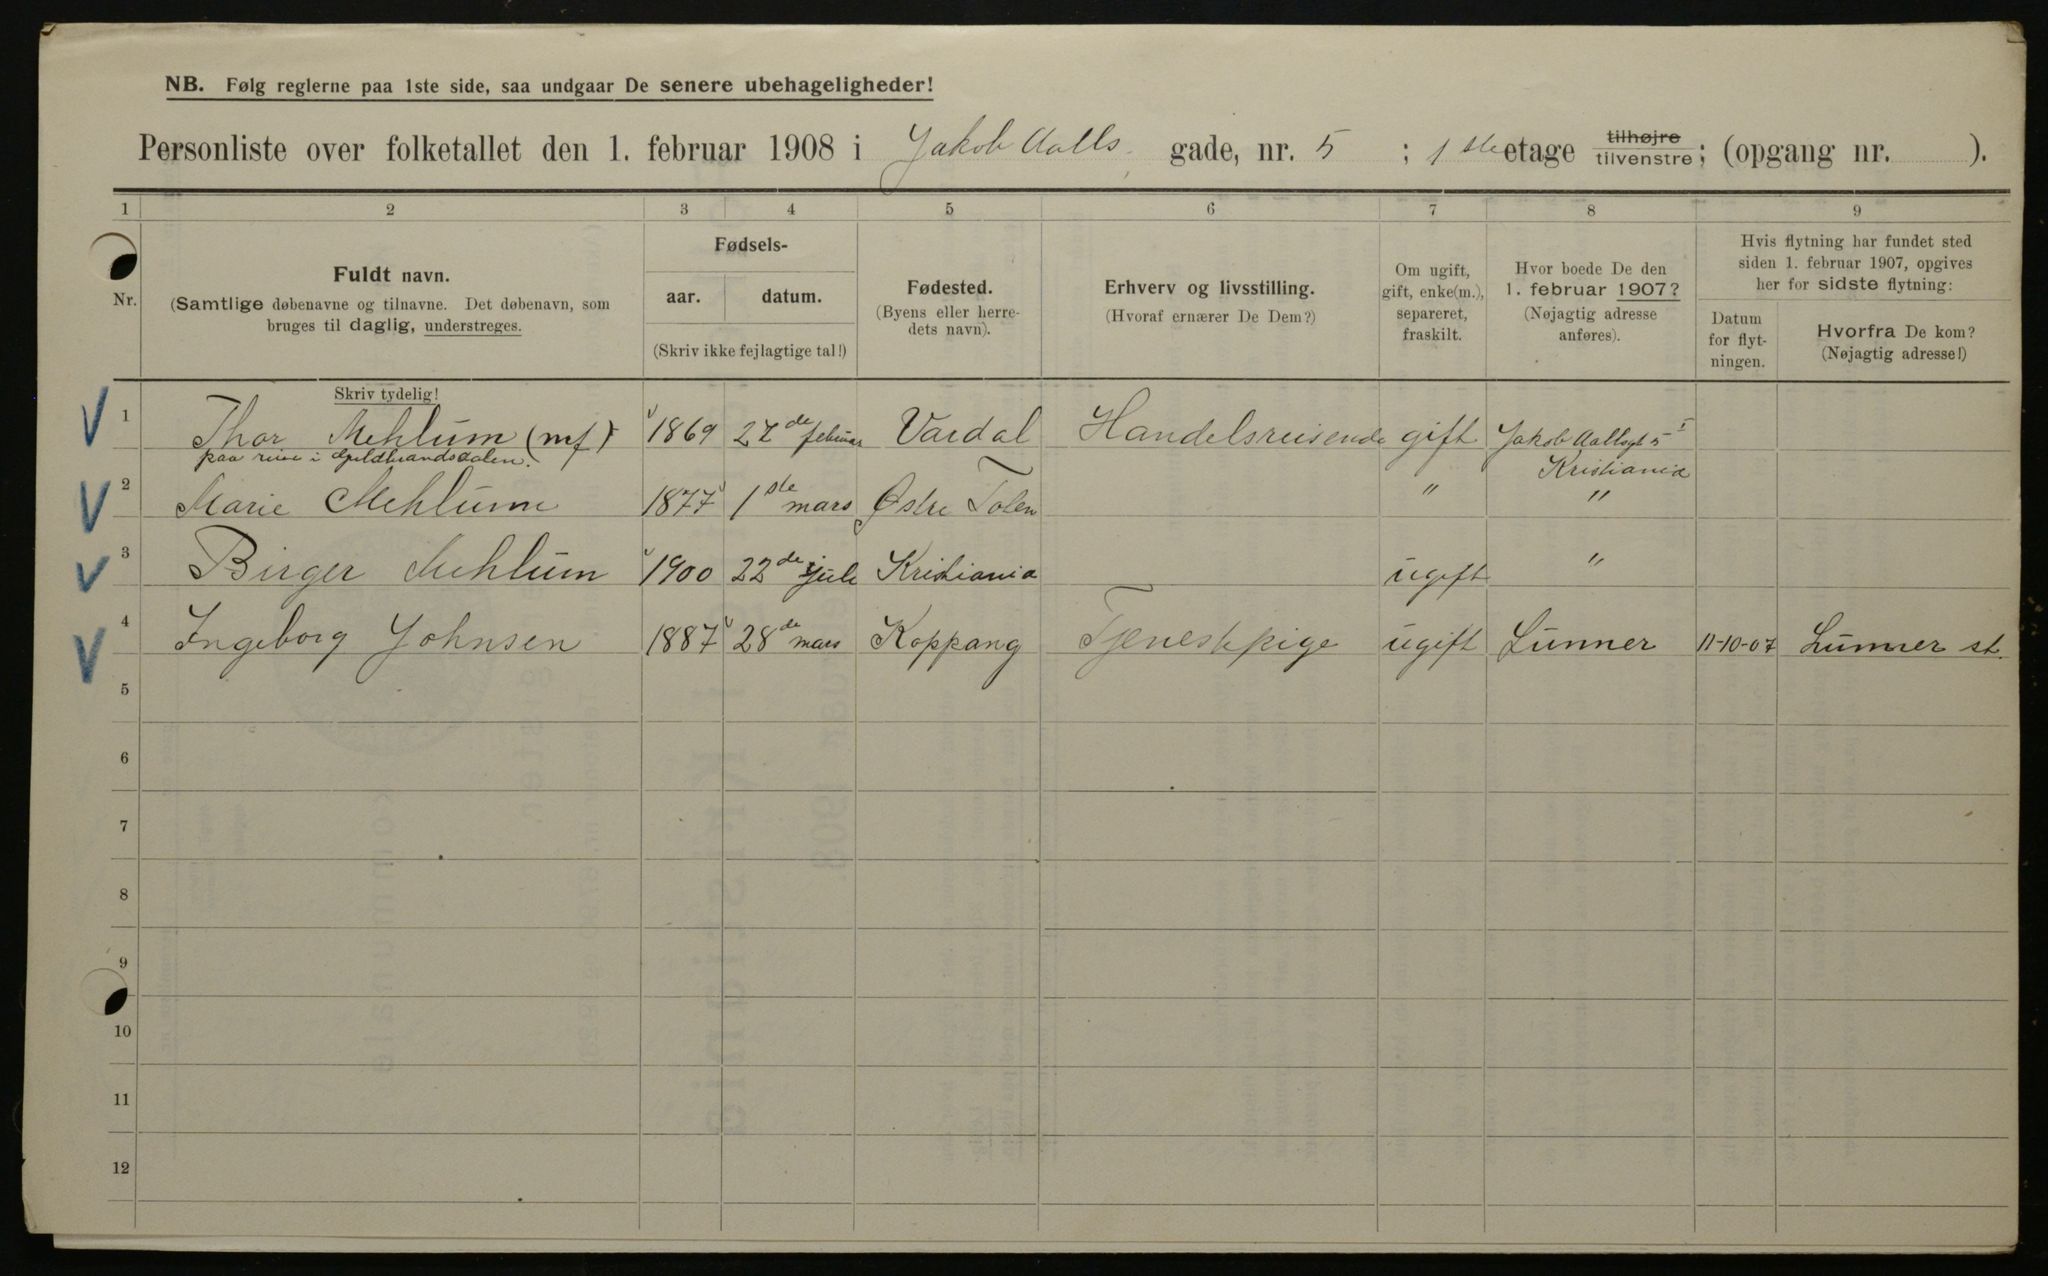 NB. Følg reglerne paa 1ste side, saa undgaar De senere ubehageligheder!
Personliste over folketallet den 1. februar 1908 i Jakob Aalls gade, nr. 5 ; 1ste etage tilhøjre tilvenstre; (opgang nr. ).
1 2 3 4 5 6 7 8 9
Nr.
Fuldt navn.
(Samtlige døbenavne og tilnavne. Det døbenavn, som
bruges til daglig, understreges.
Fødsels-
aar. datum.
(Skriv ikke fejlagtige tal!)
Fødested.
(Byens eller herre-
dets navn).
Erhverv og livsstilling.
(Hvoraf ernærer De Dem?)
Om ugift,
gift, enke(m.),
separeret,
fraskilt.
Hvor boede De den
1. februar 1907?
(Nøjagtig adresse
anføres).
Hvis flytning har fundet sted
siden 1. februar 1907, opgives
her for sidste flytning:
Datum
for flyt-
ningen.
Hvorfra De kom?
(Nøjagtig adresse!)
Skriv tydelig!
1 Thor Mehlum (mf) 1869 27de februar Vardal Handelsreisende gift Jakob Aallsgt 5 I
paa reise i Guldbrandsdalen. Kristiania
2 Marie Mehlum 1877 1ste mars Østre Toten " "
3 Birger Mehlum 1900 22de juli Kristiania ugift "
4 Ingeborg Johnsen 1887 28de mars Koppang Tjenestepige ugift Lunner 11-10-07 Lunner st.
5
6
7
8
9
10
11
12